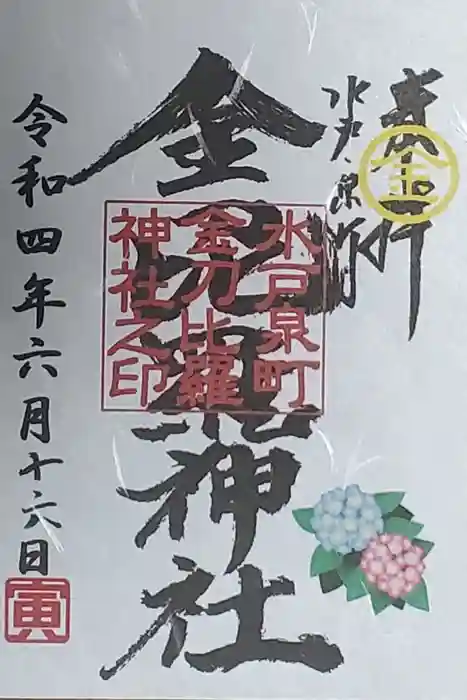 奉拝
金
水戸・泉町
金刀比羅神社
水戸泉町
金刀比羅
神社之印
令和四年六月十六日
寅